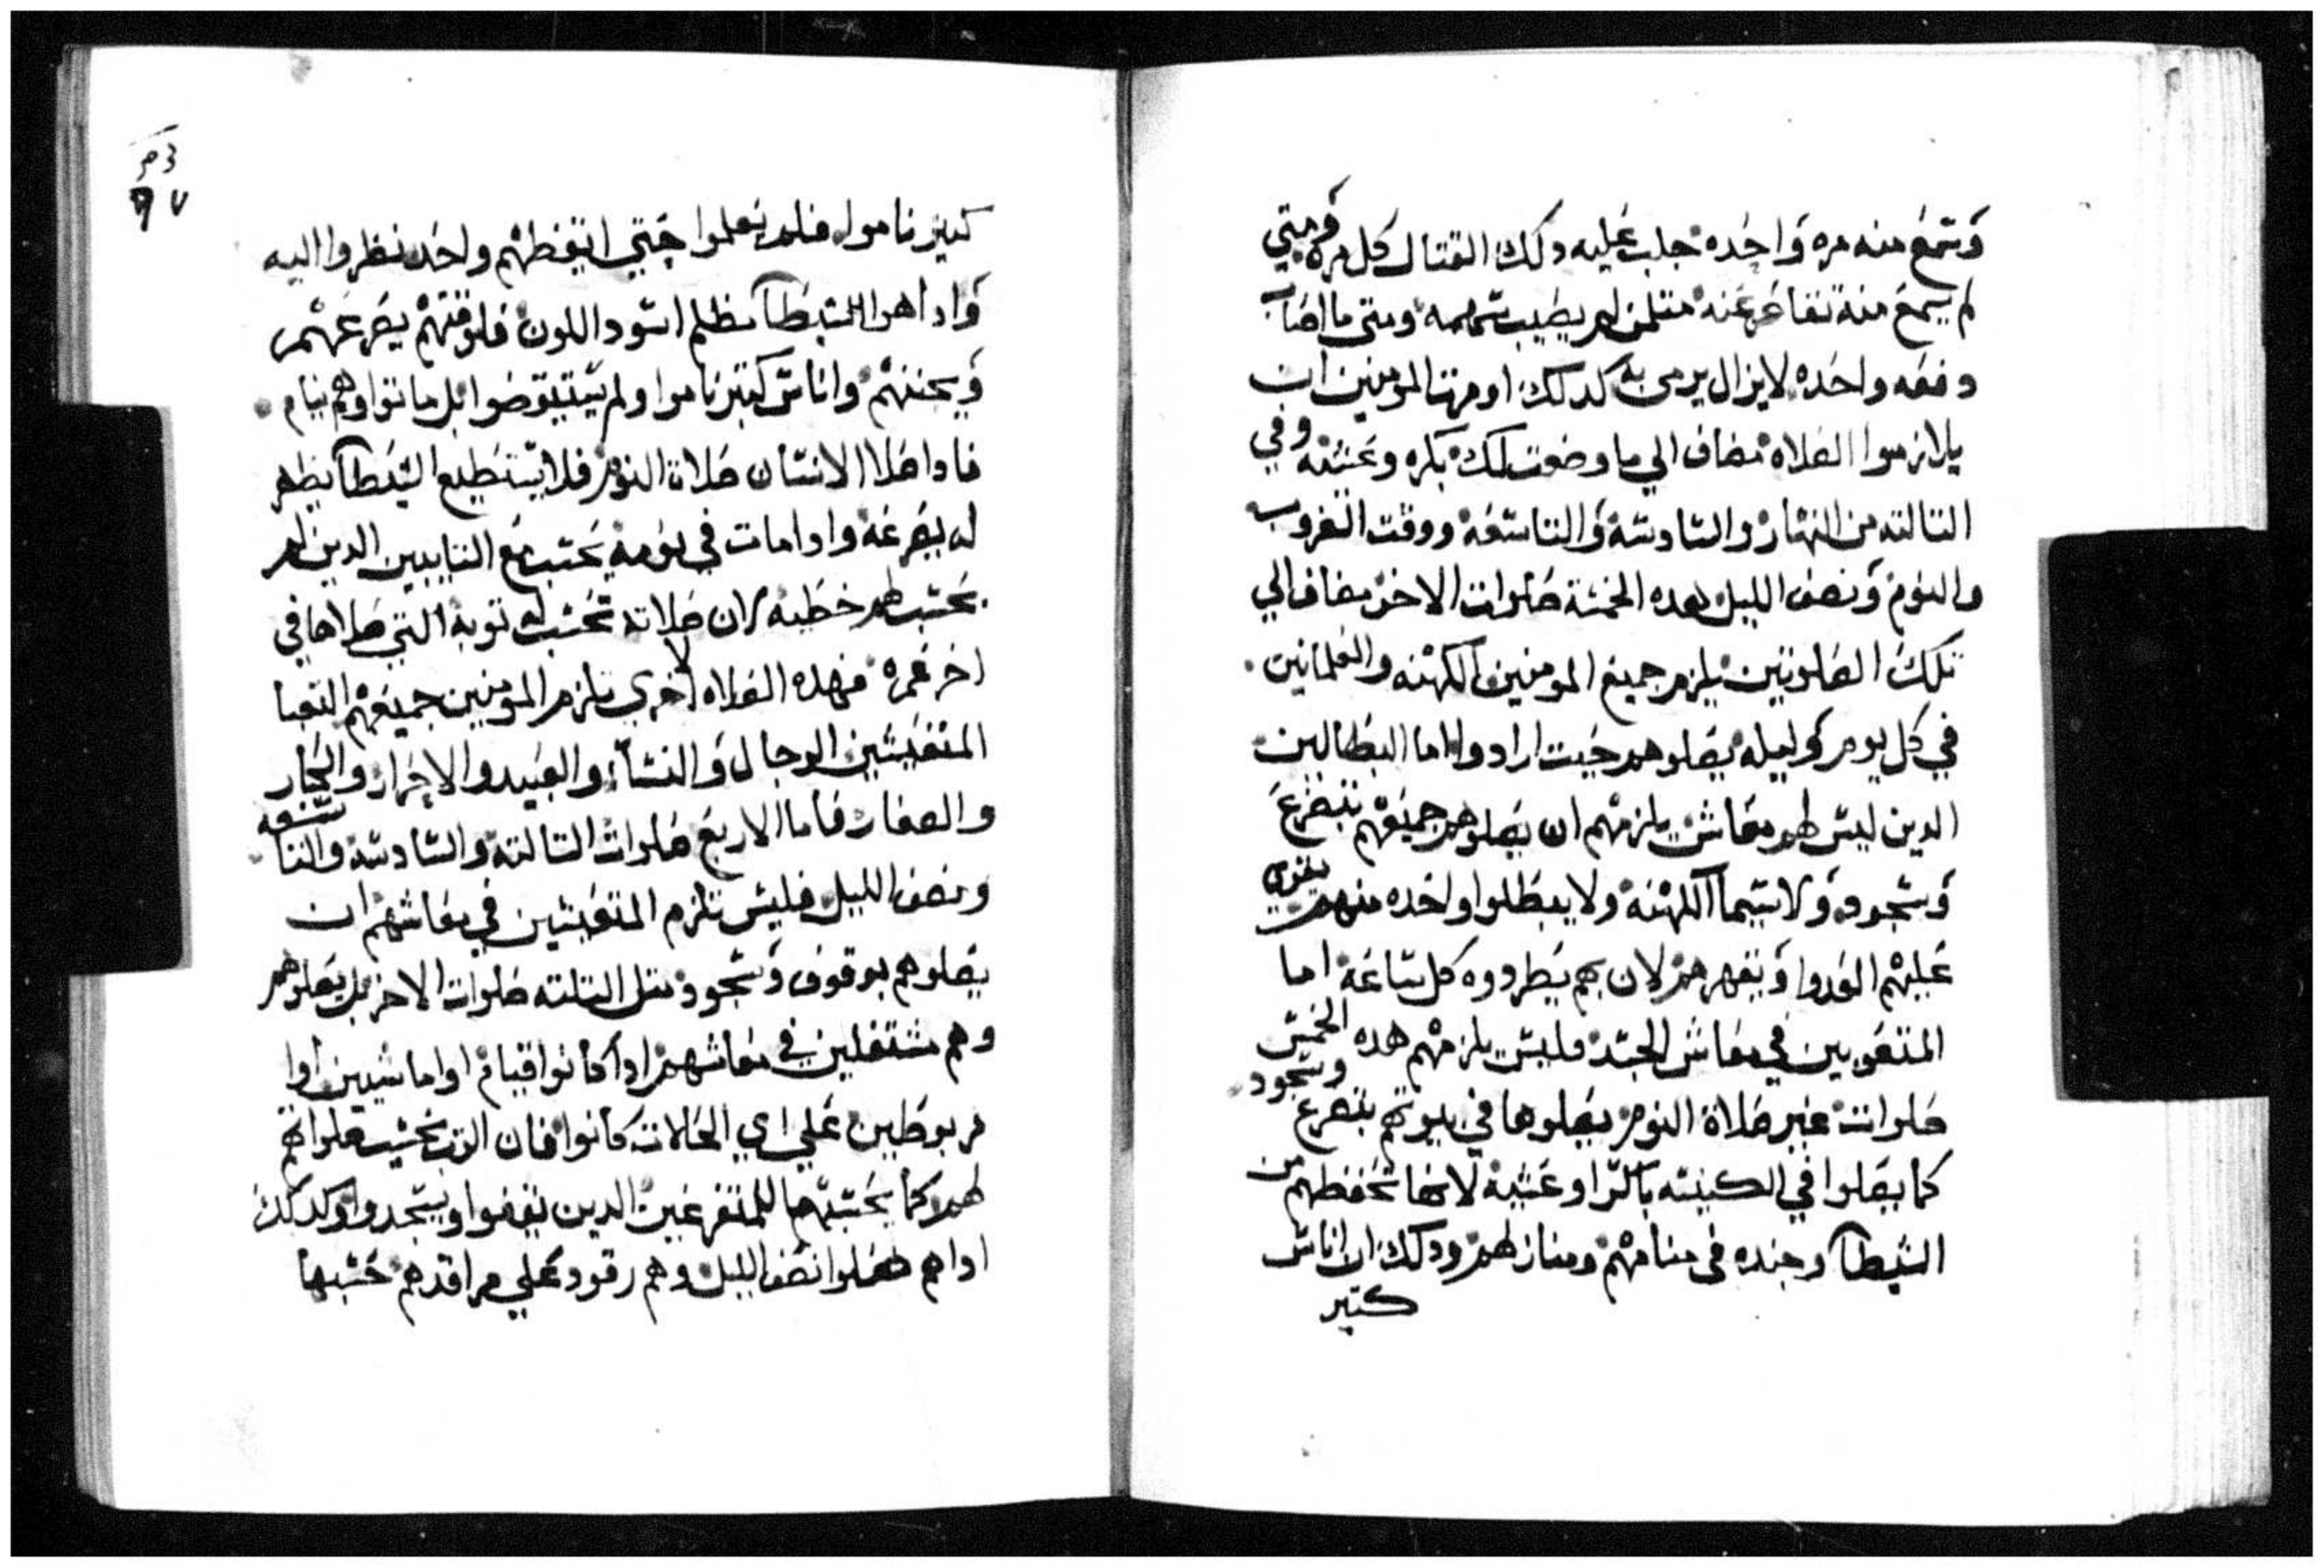 وسمع منه مره واحده جلب عليه دلك القتال كل مره ومتي
لم يسمع منه تقاصر عنه متلمن لم يطيب سهمه ومتى ما اصاب
دفعه واحده لايزال يرمى به كدلك اومرنا المومنين ان
يلازموا الصلاه مضاف الي ما وضعت لك بكره وعشيه وفي
التالته من النهار والسادسه والتاسعه ووقت الغروب
والنوم ونصف الليل هده الخمسة صلوات الاخر مضاف الي
تلك الصلوتين يلزم جميع المومنين الكهنه والعلمانين
في كل يوم وليله يصلوهم حيت ارادوا اما البطالين
الدين ليس لهم معاش يلزمهم ان يصلوهم جميعهم بتضرع
وسجود ولا سيما الكهنة ولا يبطلوا واحده منهم يقوي
عليهم العدوا ويقهرهم لان بهم يطردوه كل ساعة اما
المتعوبين في معاش الجسد فليس يلزمهم هده الخمس
صلوات غير صلاة النوم يصلوها في بيوتهم بتضرع وسجود
كما يصلوا في الكنيسه باكرا وعشية لانها تحفظهم من
الشيطان وجنده في منامهم ومنازلهم ودلك ان اناس
كتير
كتير ناموا فلم يعلموا حتي ايقظهم واحد نظروا اليه
وادا هو الشيطان مظلم اسود اللون فلوقتهم يصرعهم
ويجننهم واناس كتير ناموا ولم يستيقوضوا بل ماتوا وهم نيام
فادا صلا الانسان صلاة النوم فلا يستطيع الشيطان يظهر
له يصرعه وادا مات في نومه يحسب مع التايبين الدين لم
يحسب لهم خطيه لان صلاته تحسب له توبة التي صلاها في
اخر عمره فهده الصلاه الاخري تلزم المومنين جميعهم التعبا
المتعيشين الرجال والنسا والعبيد والاحرار والكبار
والصغار فاما الاربع صلوات التالته والسادسه والتاسعه
ونصف الليل فليس تلزم المتعيشين في معاشهم ان
يصلوهم بوقوف وسجود متل التلته صلوات الاخر بل يصلوهم
وهم مشتغلين في معاشهم ادا كانوا قيام او ماشيين اوا
مربوطين علي اي الحالات كانوا فان الرب يحسب صلواتهم
لهم كما يحسبهم للمتفرغين الدين يقفوا ويسجدوا وكدلك
اداهم صلوا نصف الليل وهم رقود علي مراقدهم تحسبها